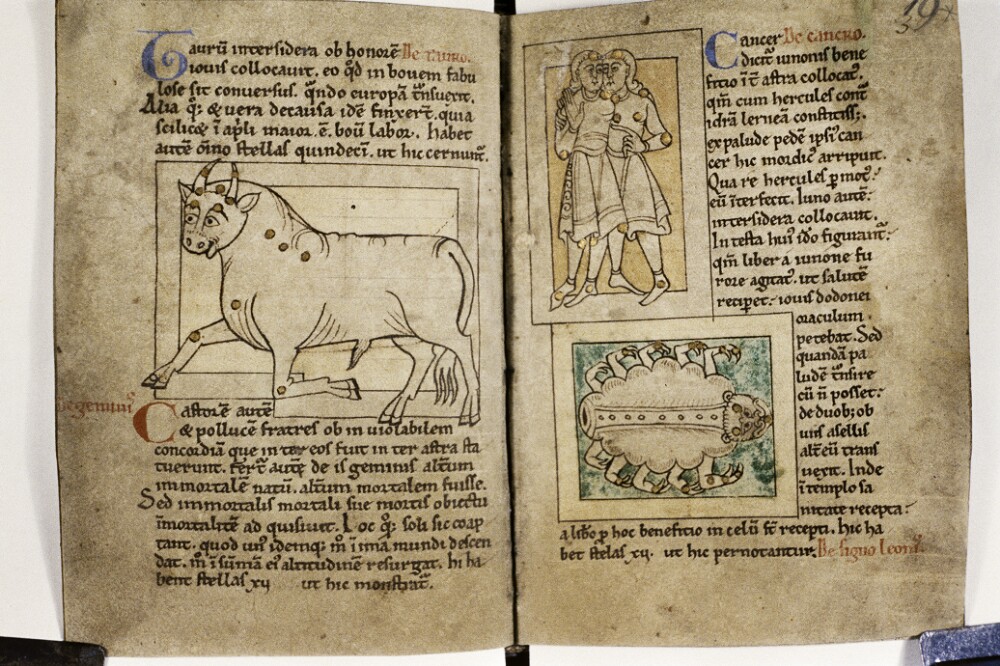 Taurū inter sidera ob honorē De tauro.
iouis collocauit. eo qd in bouem fabu
lose sit conuersus. qndo europam
Alia q; & uera de causa idē finxert. quia
maior. ē. boū labor. habet
autē stellas quindeci. ut hic cernunt.
De geminis
Castorē autē
& pollucē fratres ob in uiolabilem
concordiā que inter eos fuit inter astra sta
tuerunt. fert autē de is geminis altum
immortalē natū. altum mortalem fuisse.
Sed immortalis mortali sue mortis obiectu
īmortalitē ad quisiuit. hoc q; soli sic coap
tant. quod un idemq; m̄ ī imā mundi descen
dat. m̄ ī sūmā ei altitudinē resurgat. hi ha
bent stellas xii ut hic monstrat.
19
Cancer De cancro.
dicit iunonis bene
fitio īt astra collocat.
qm cum hercules
idrā lerneā
ex palude pedē ipsi can
cer hic mordic arripuit.
Qua re hercules p mot
eū īterfecit. Iuno autē
inter sidera collocauit.
In testa hui ido figurant
qm liber a iunone fu
rore agitat. ut salutē
recipet. iouis dodonei
oraculum
petebat. Sed
quandā pa
ludē tnsire
cū n posset
de duob; ob
uiis asellis
alt eū trans
uexit. Inde
ī templo sa
nitate recepta
a libo p hoc benefitio in celū st recepti. hic ha
bet stelas xii. ut hic pernotantur. De signo leonis.